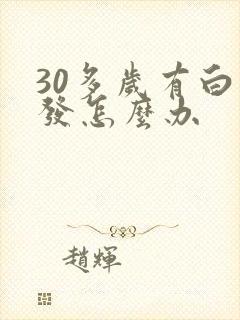 30多歲有白
發怎麼办
趙輝